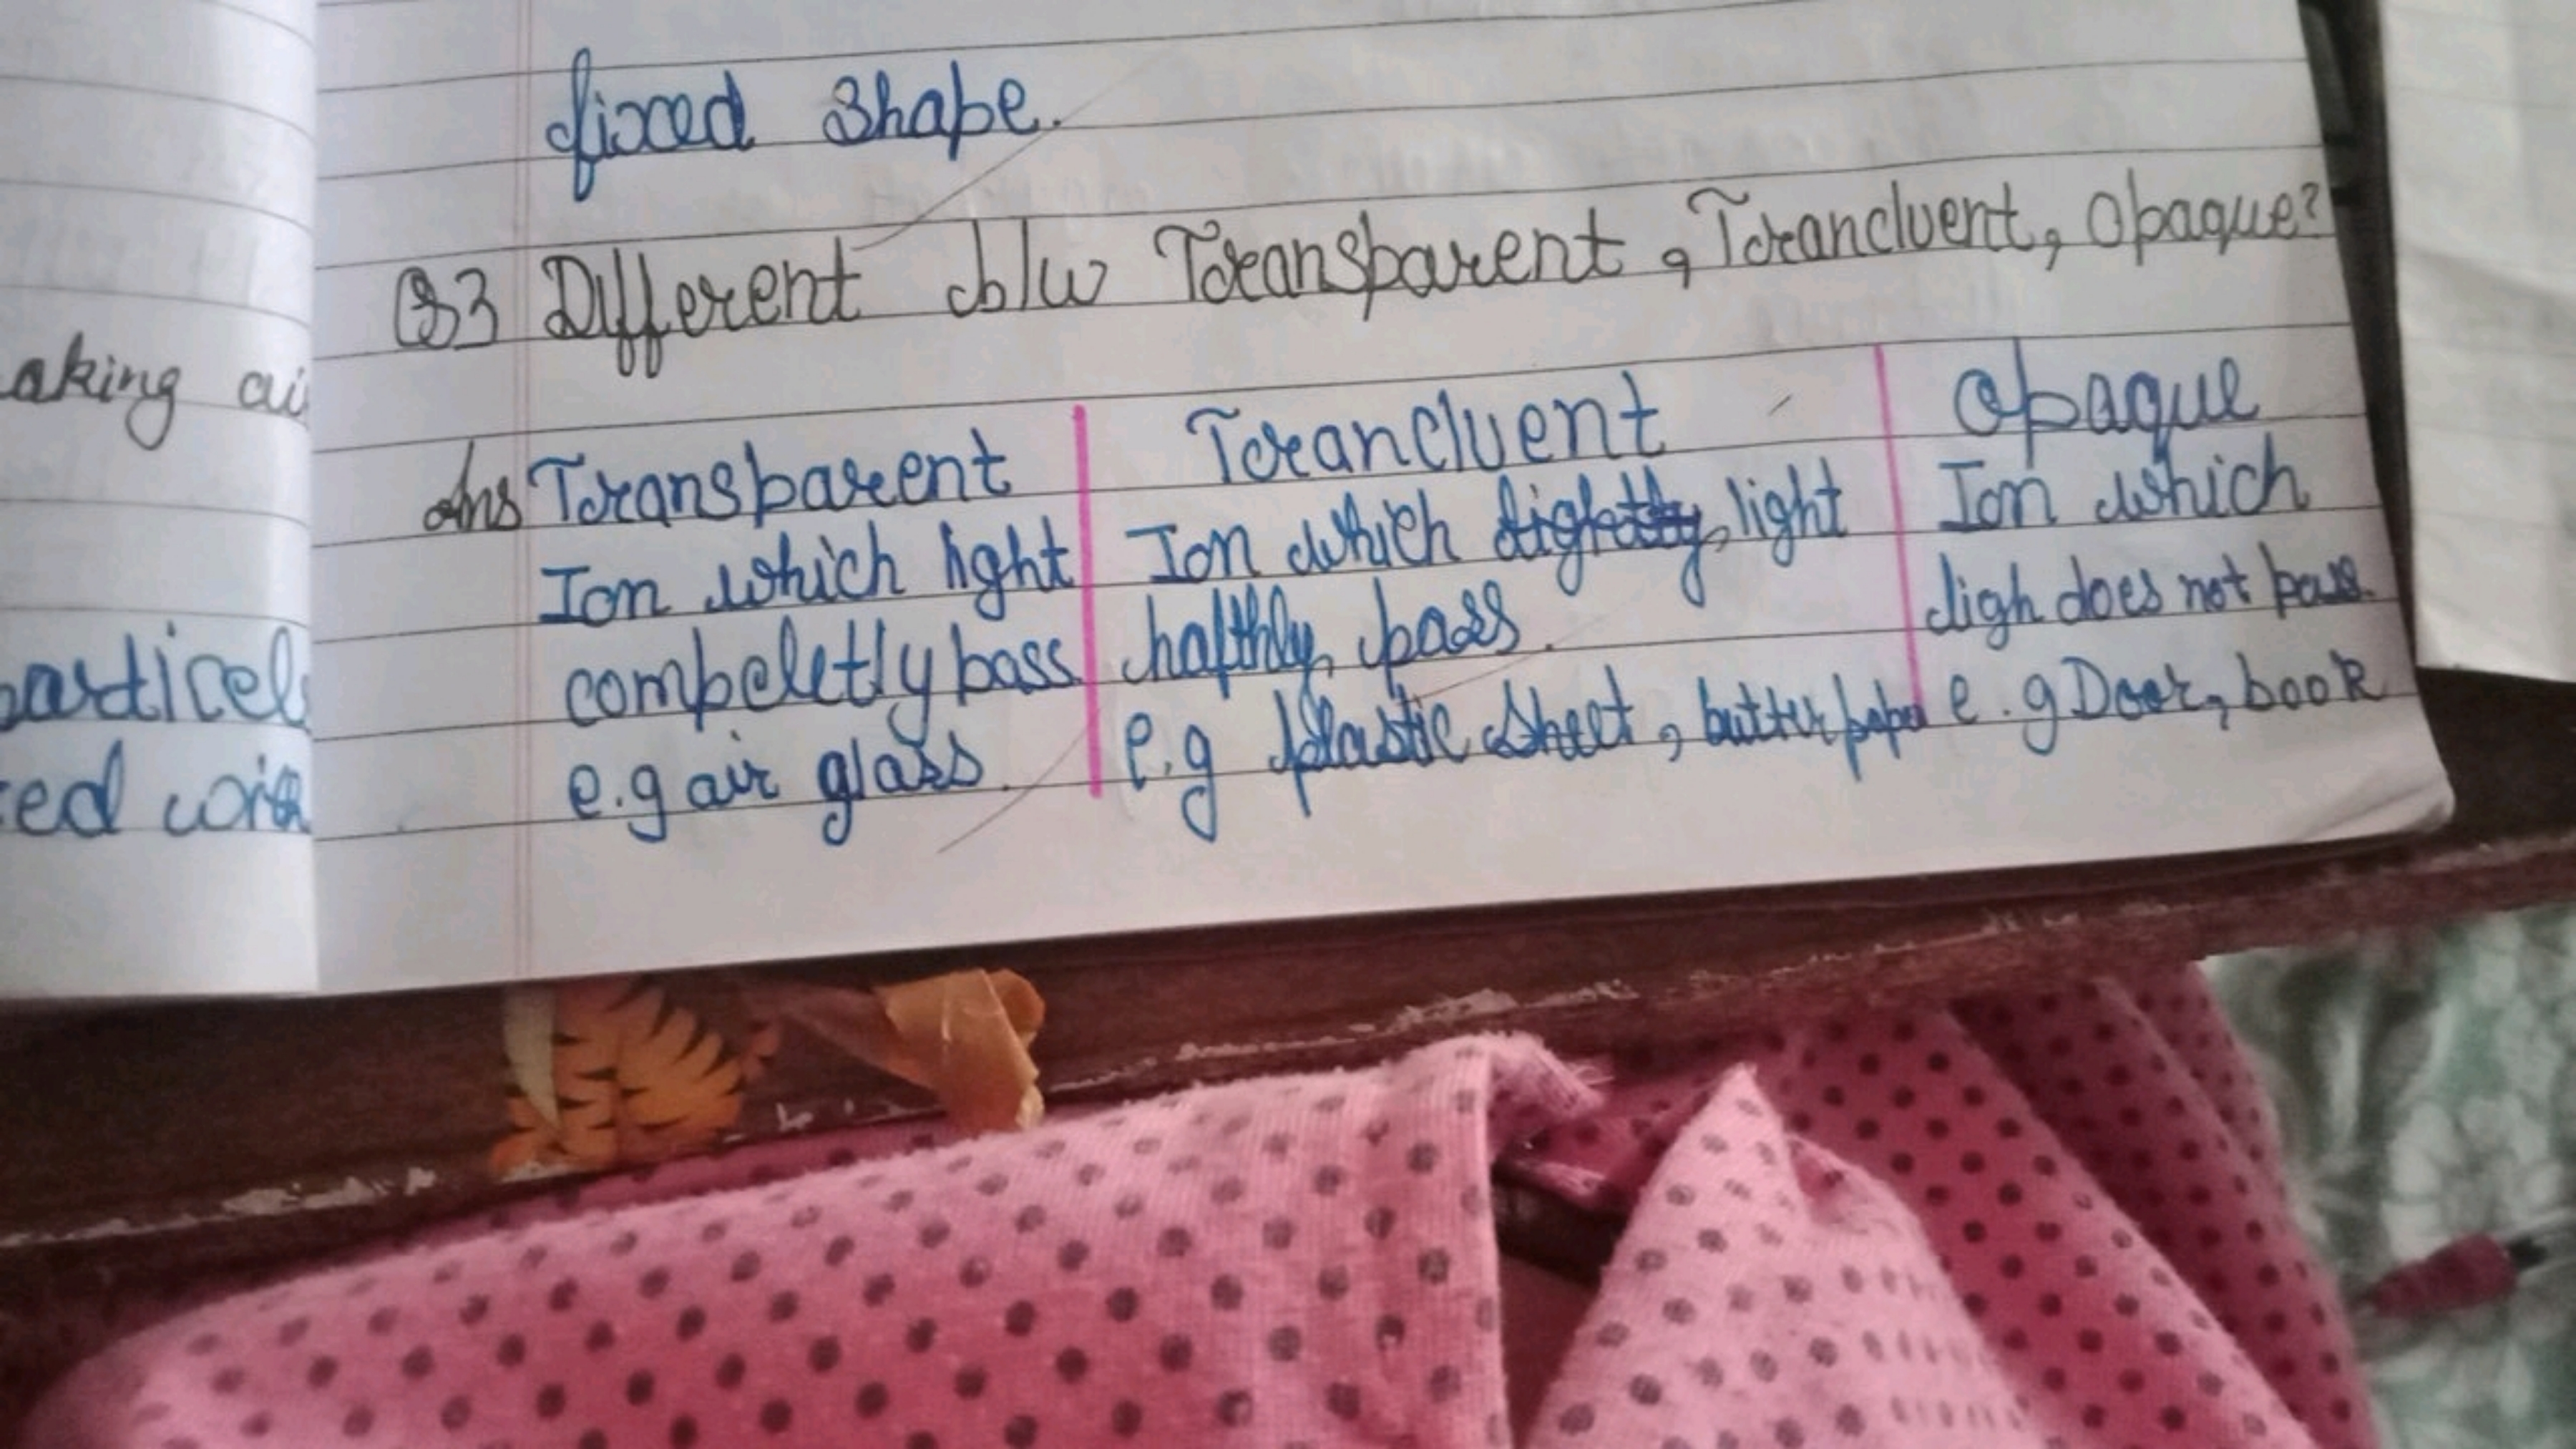 fixed shape.
Q3 Different b/w Transparent, Trancluent, Opaque?
aking ai
Ans Transparent | Trancluent | Opaque
Ion which light | Ion which light | Ion which
compeletly pass | halfthly pass. | ligh does not pass.
e.g air glass. | e.g plastic sheet, butter pape | e.g Door, book
particel
ed wi